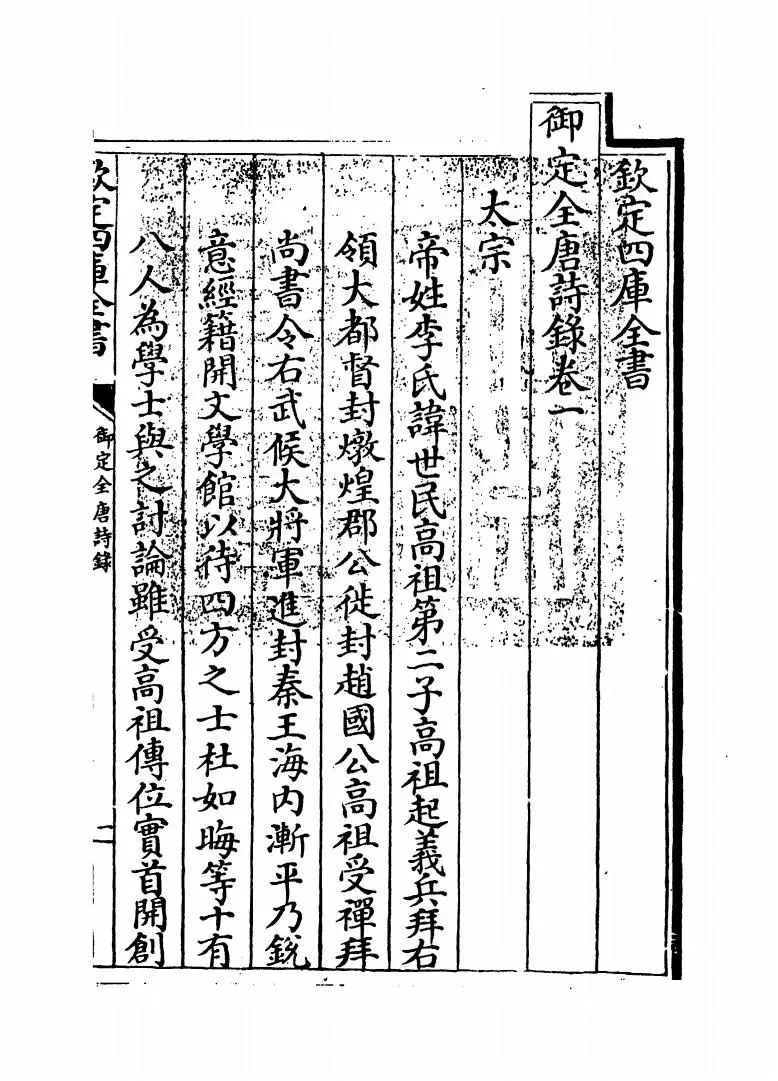 欽定四庫全書
御定全唐詩錄卷一
太宗
帝姓李氏諱世民高祖第二子高祖起義兵拜右
領大都督封燉煌郡公徙封趙國公高祖受禪拜
尚書令右武候大將軍進封秦王海内漸平乃銳
意經籍開文學館以待四方之士杜如晦等十有
八人為學士與之討論雖受高祖傳位實首開創
欽定四庫全書
御定全唐詩錄